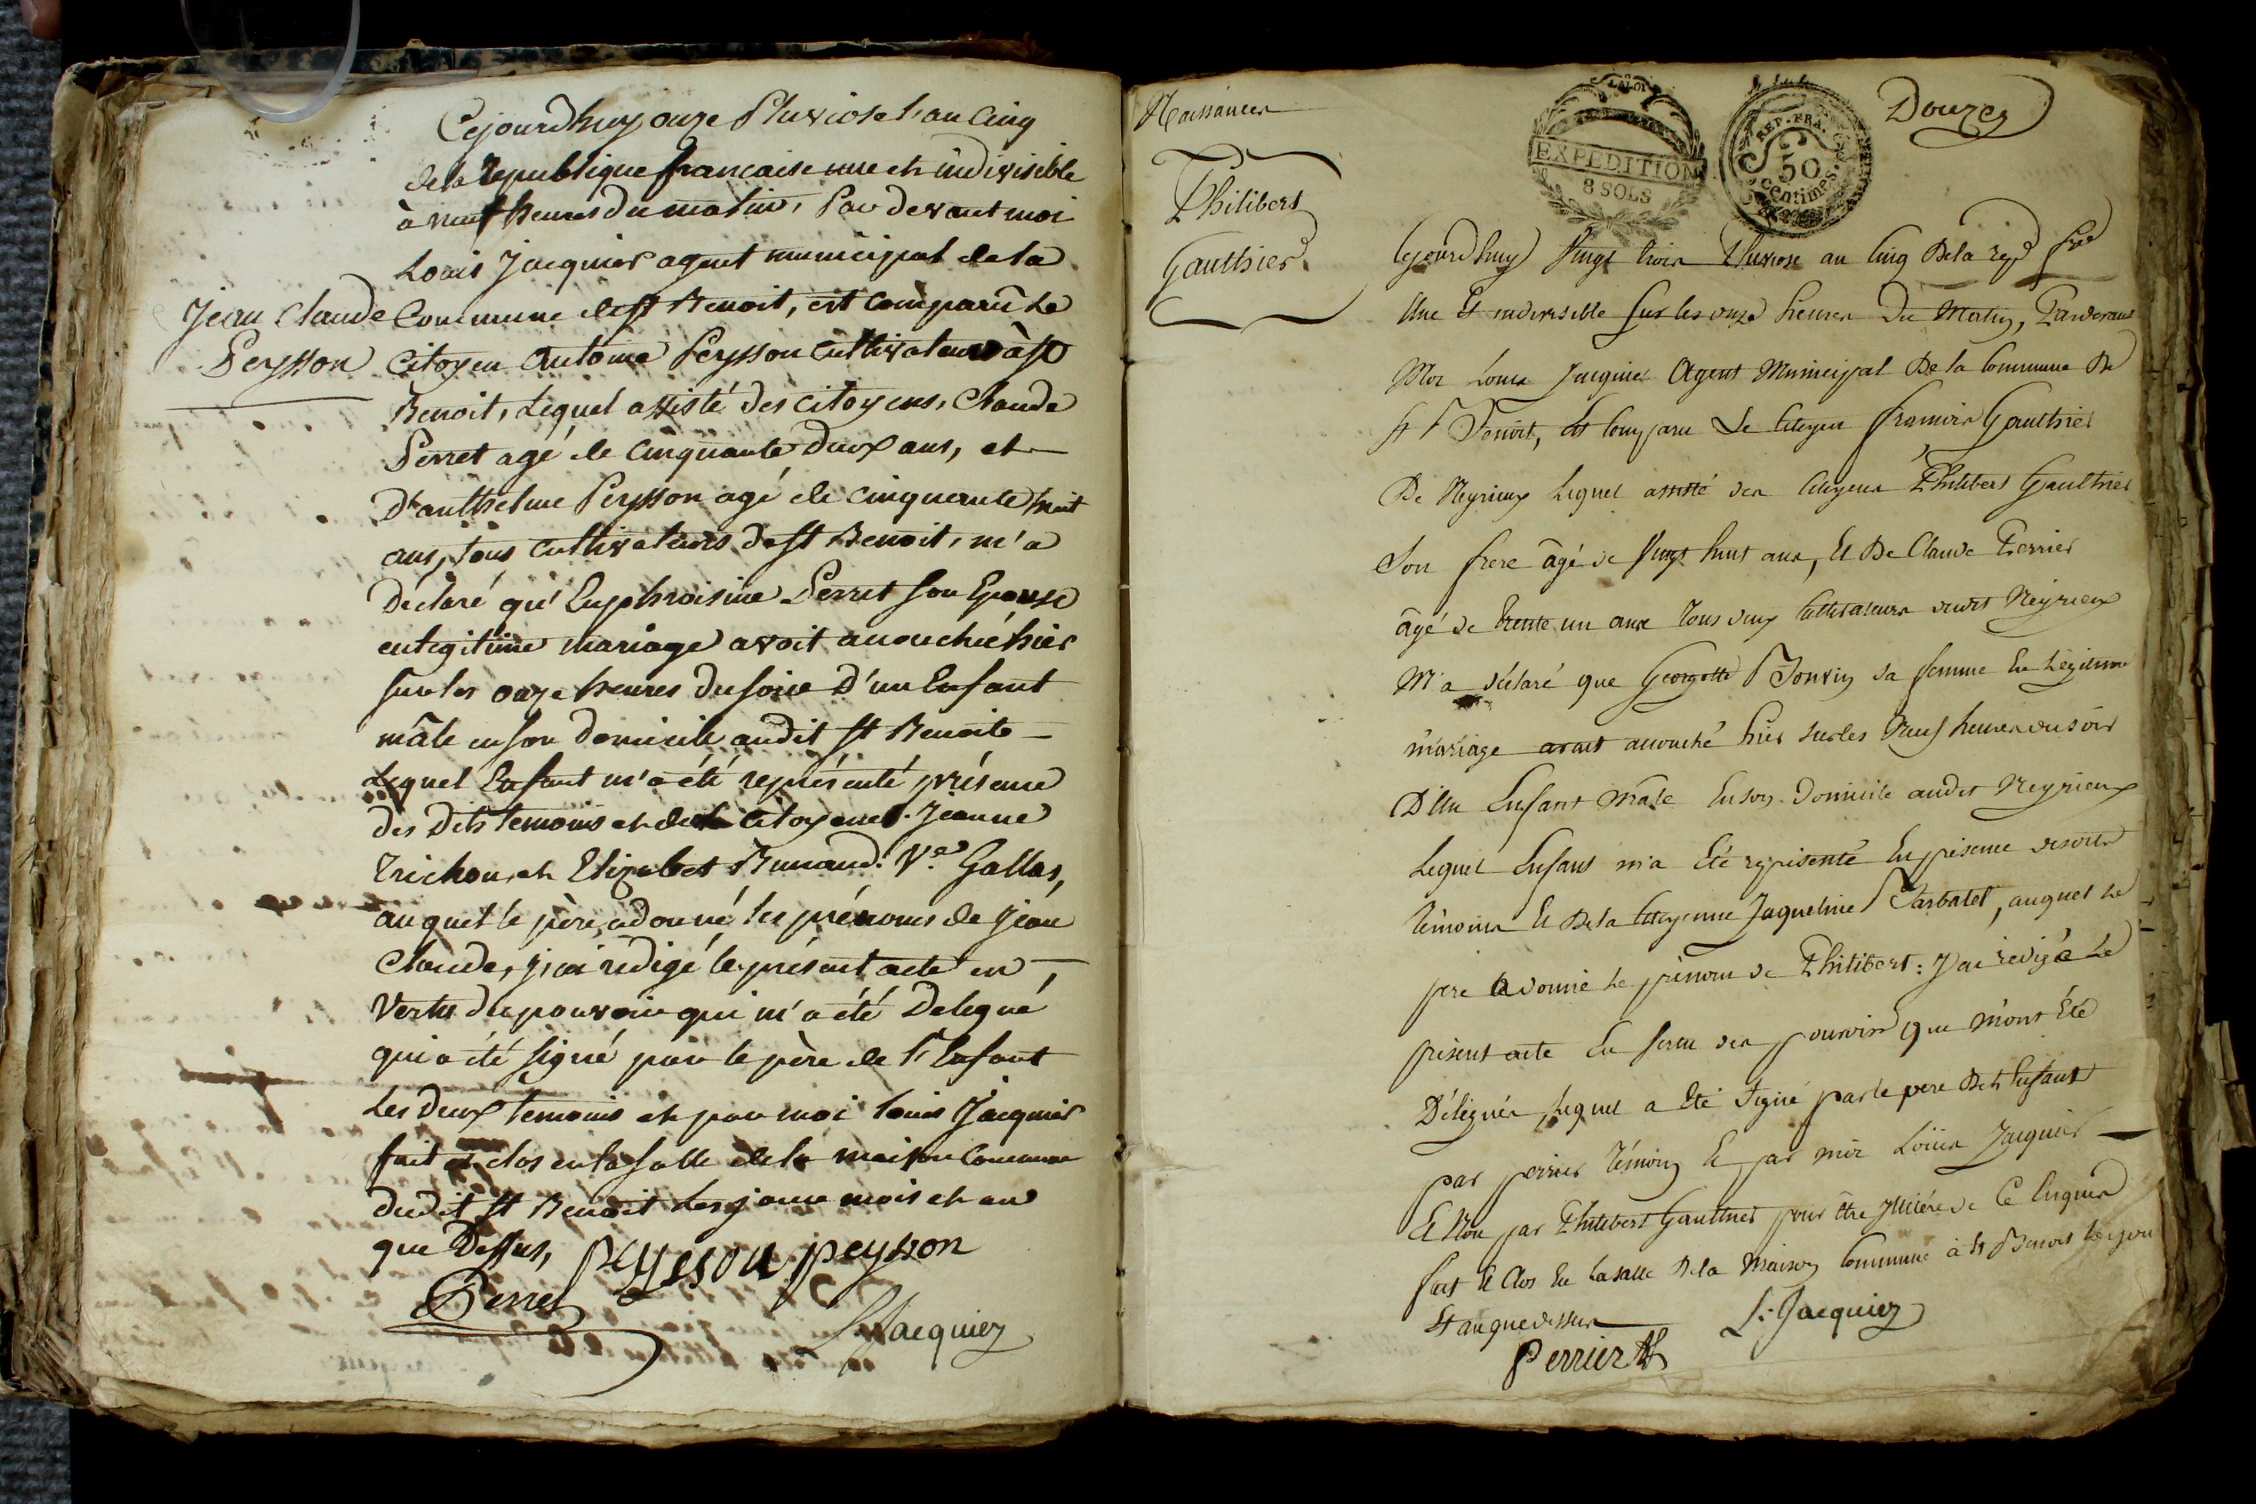 Cejourdhuy onze Pluviose l'an Cinq
de la Republique francaise une et indivisible
à neuf heures du matin, Par devant moi
Louis Jacquier agent municipal de la
Jean Claude
Peysson
Commune de st Benoit, est comparû le
Citoyen Antoine Peysson cultivateur à st
Benoit, Lequel assisté des citoyens, Claude
Perret agé de cinquante deux ans, et
D'anthelme Peysson agé de cinquante huit
ans, tous cultivateurs de st Benoit, m'a
déclaré qu'Euphroisine Perret son Epouse
en legitime mariage avoit acouché hier
sur les onze heures du soire D'un Enfant
mâle en son domicile audit st Benoite
Lequel Enfant m'a été représenté présence
des Dits temoins et de citoyenes Jeanne
Trichon et Elizabet Bunand Ve Gallas,
auquel le père a donné les prénoms de Jean
Claude, j'ai redigé le présent acte en
vertu du pouvoir qui m'a été Delegué
qui a été signé par le père de l'Enfant
Les deux temoins et par moi Louis Jacquier
fait et clos en la salle de la maison Commune
dudit st Benoit Les jour mois et an
que Dessus,
peysson peysson
Perret
L. Jacquier
Naissances
Douze
LA LOI
EXPEDITION
8 SOLS
REP. FRA.
50
centimes.
Philibert
Gauthier
Cejourdhuy vingt trois Pluviose an Cinq De la rep frse
Une Et indivisible sur les onze heures Du Matin, Pardevant
Moi Louis Jacquier Agent Municipal De la Commune De
st Benoit, Est Comparu Le Citoyen francois Gauthier
De Neyrieux Lequel assisté des Citoyens Philibert Gauthier
Son frere âgé de vingt huit ans, Et De Claude Perrier
âgé de trente un ans Tous deux Cultivateurs dudit Neyrieux
M'a déclaré que Georgette Bonvin sa femme En Légitime
mariage avait acouché hier sur les Neuf heures du soir
D'Un Enfant Mâle En son Domicile audit Neyrieux
Lequel Enfant m'a Eté représenté En présence desdits
témoins Et De la Citoyenne Jaqueline Barbatet, auquel Le
pere A donné Le prénom de Philibert : J'ai redigée Le
présent acte En vertu des pouvoirs que m'ont Eté
Délégués, Lequel a Eté Signé par le pere De l'Enfant
par perrier témoin Et par moi Louis Jacquier
Et Non par Philibert Gauthier pour être Illiteré de Ce Enquis
fait Et Clos En la salle De la Maison Commune à st Benoit Les jour
Et an que dessus
L. Jacquier
Perrier